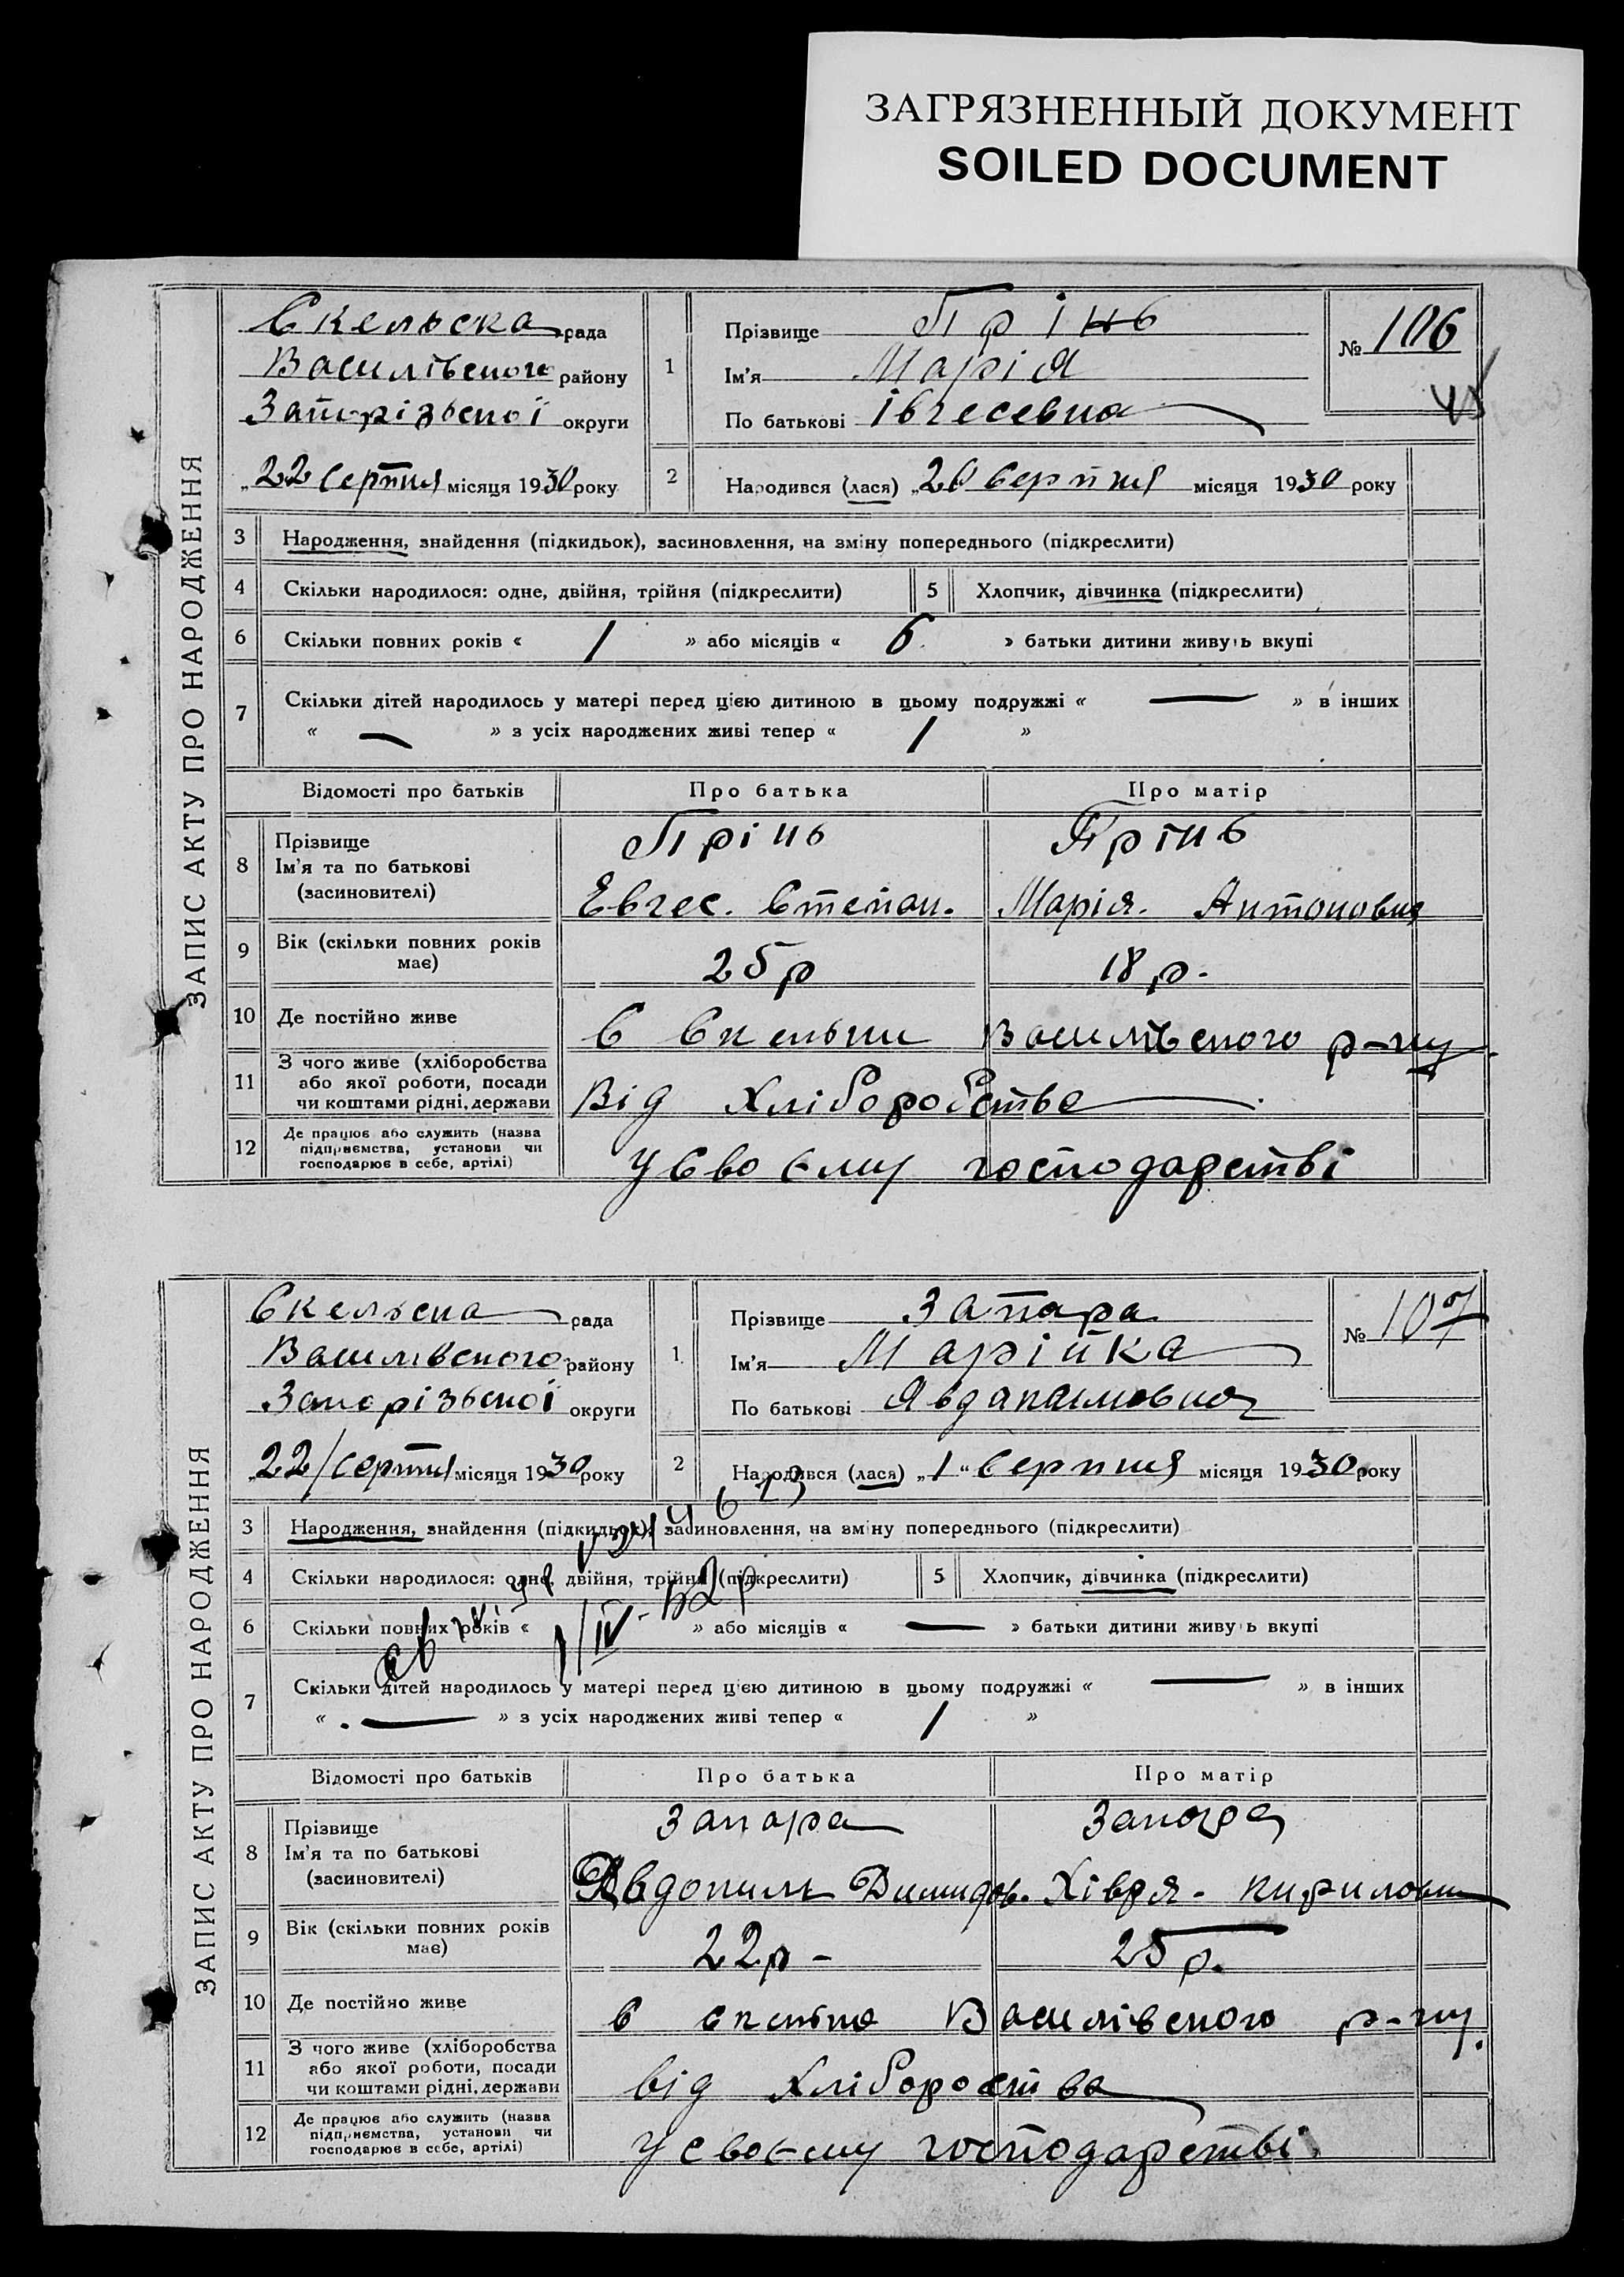 ЗАГРЯЗНЕННЫЙ ДОКУМЕНТ
SOILED DOCUMENT
ЗАПИС АКТУ ПРО НАРОДЖЕННЯ
Скельска рада
Василівського району
Запорізької округи
„22 серпня місяця 1930 року
1 Прізвище Прінь
Ім'я Марія
По батькові Івгесевна
№ 106
2 Народився (лася) „20 серпня місяця 1930 року
3 Народження, знайдення (підкидьок), засиновлення, на зміну попереднього (підкреслити)
4 Скільки народилося: одне, двійня, трійня (підкреслити) 5 Хлопчик, дівчинка (підкреслити)
6 Скільки повних років « 1 » або місяців « 6 » батьки дитини живуть вкупі
7 Скільки дітей народилось у матері перед цією дитиною в цьому подружжі « — » в інших
« — » з усіх народжених живі тепер « 1 »
Відомості про батьків Про батька Про матір
8 Прізвище Прінь Прінь
Ім'я та по батькові
(засиновителі) Евгес. Степан. Марія. Антоновна
9 Вік (скільки повних років
має) 25 р 18 р.
10 Де постійно живе С Скельки Василівського р-ну
11 З чого живе (хліборобства
або якої роботи, посади
чи коштами рідні, держави Від Хліборобства
12 Де працює або служить (назва
підприємства, установи чи
господарює в себе, артілі) У своєму господарстві
ЗАПИС АКТУ ПРО НАРОДЖЕННЯ
Скельска рада
Василівського району
Запорізської округи
„22/серпня місяця 1930 року
1. Прізвище Запара
Ім'я Марійка
По батькові Явдакимовна
№ 107
2 Народився (лася) „1“ серпня місяця 1930 року
3 Народження, знайдення (підкидьок), засиновлення, на зміну попереднього (підкреслити)
4 Скільки народилося: одне, двійня, трійня (підкреслити) 5 Хлопчик, дівчинка (підкреслити)
6 Скільки повних років « » або місяців « — » батьки дитини живуть вкупі
1/IV-52 р
7 Скільки дітей народилось у матері перед цією дитиною в цьому подружжі « — » в інших
« — » з усіх народжених живі тепер « 1 »
Відомості про батьків Про батька Про матір
8 Прізвище Запара Запара
Ім'я та по батькові
(засиновителі) Явдоким Димидов. Хівря. Кириловн
9 Вік (скільки повних років
має) 22 р - 25 р.
10 Де постійно живе С Скельке Василівського р-ну.
11 З чого живе (хліборобства
або якої роботи, посади
чи коштами рідні, держави від Хлібороства
12 Де працює або служить (назва
підприємства, установи чи
господарює в себе, артілі) У своєму господарстві.